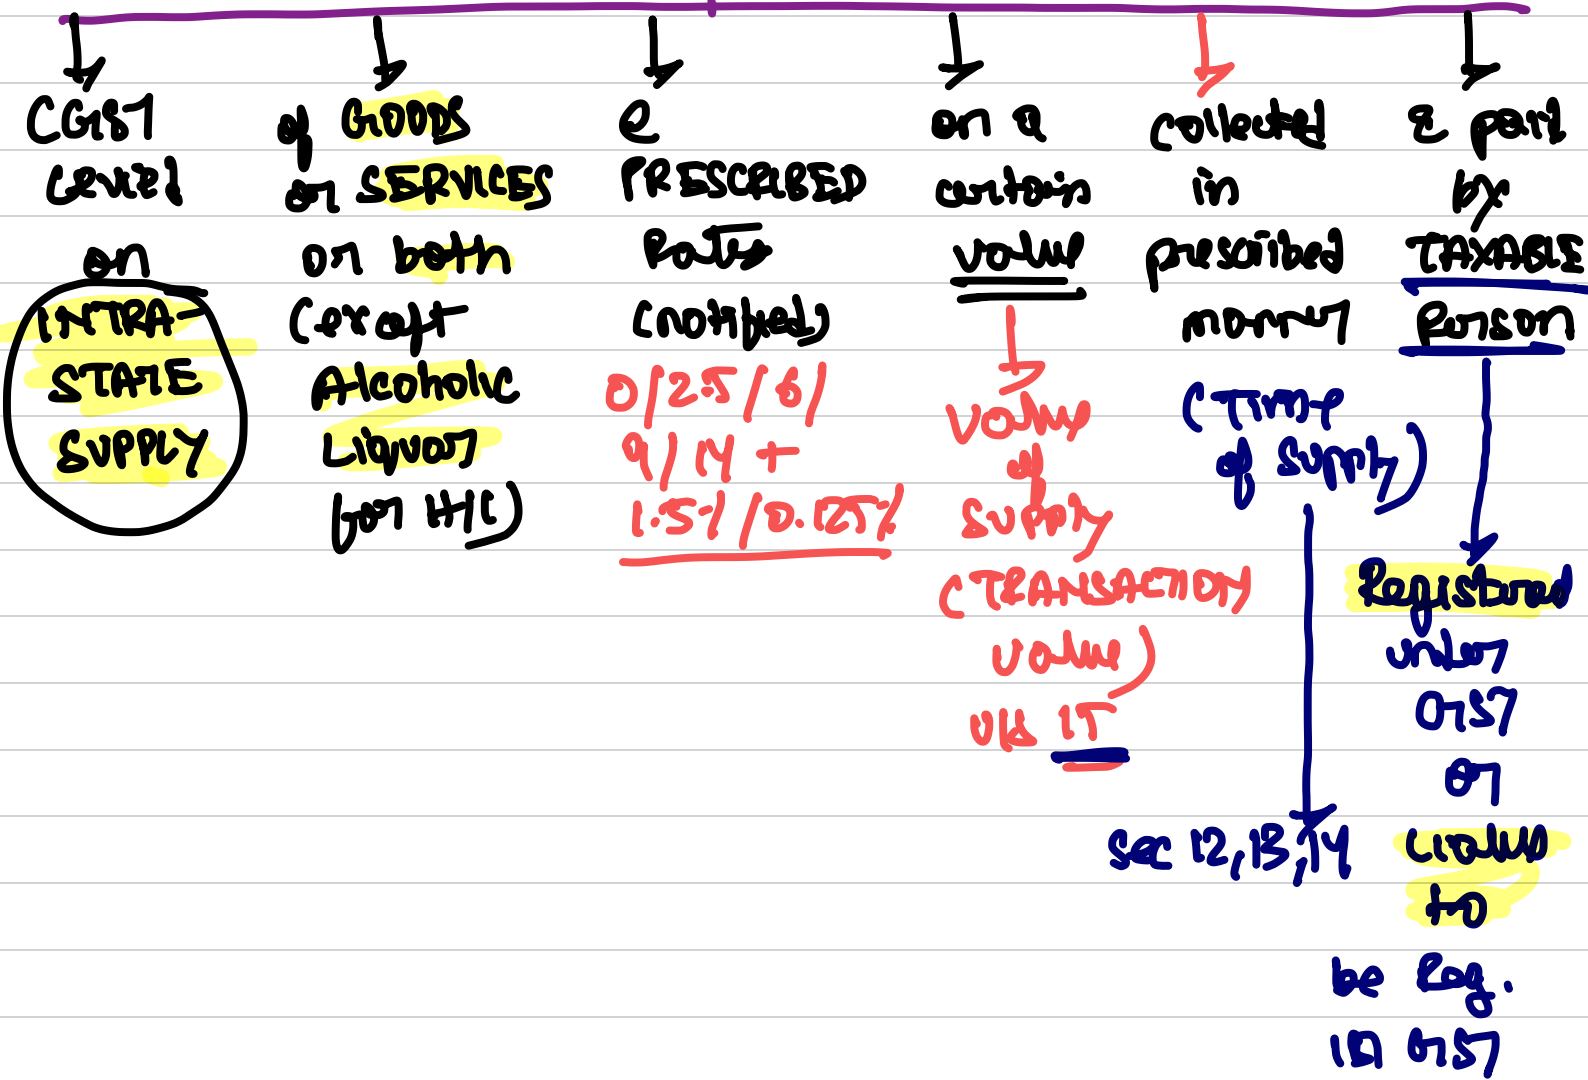 CGST
Levied
on
INTRA-
STATE
SUPPLY
of GOODS
or SERVICES
or both
(except
Alcoholic
Liquor
for H/C)
@
PRESCRIBED
Rates
(notified)
0/2.5/6/
9/14 +
1.5%/0.125%
on a
certain
value
value
of
supply
(TRANSACTION
value)
u/s 15
collected
in
prescribed
manner
(Time
of supply)
Sec 12,13,14
& paid
by
TAXABLE
Person
Registered
under
GST
or
Liable
to
be Reg.
in GST